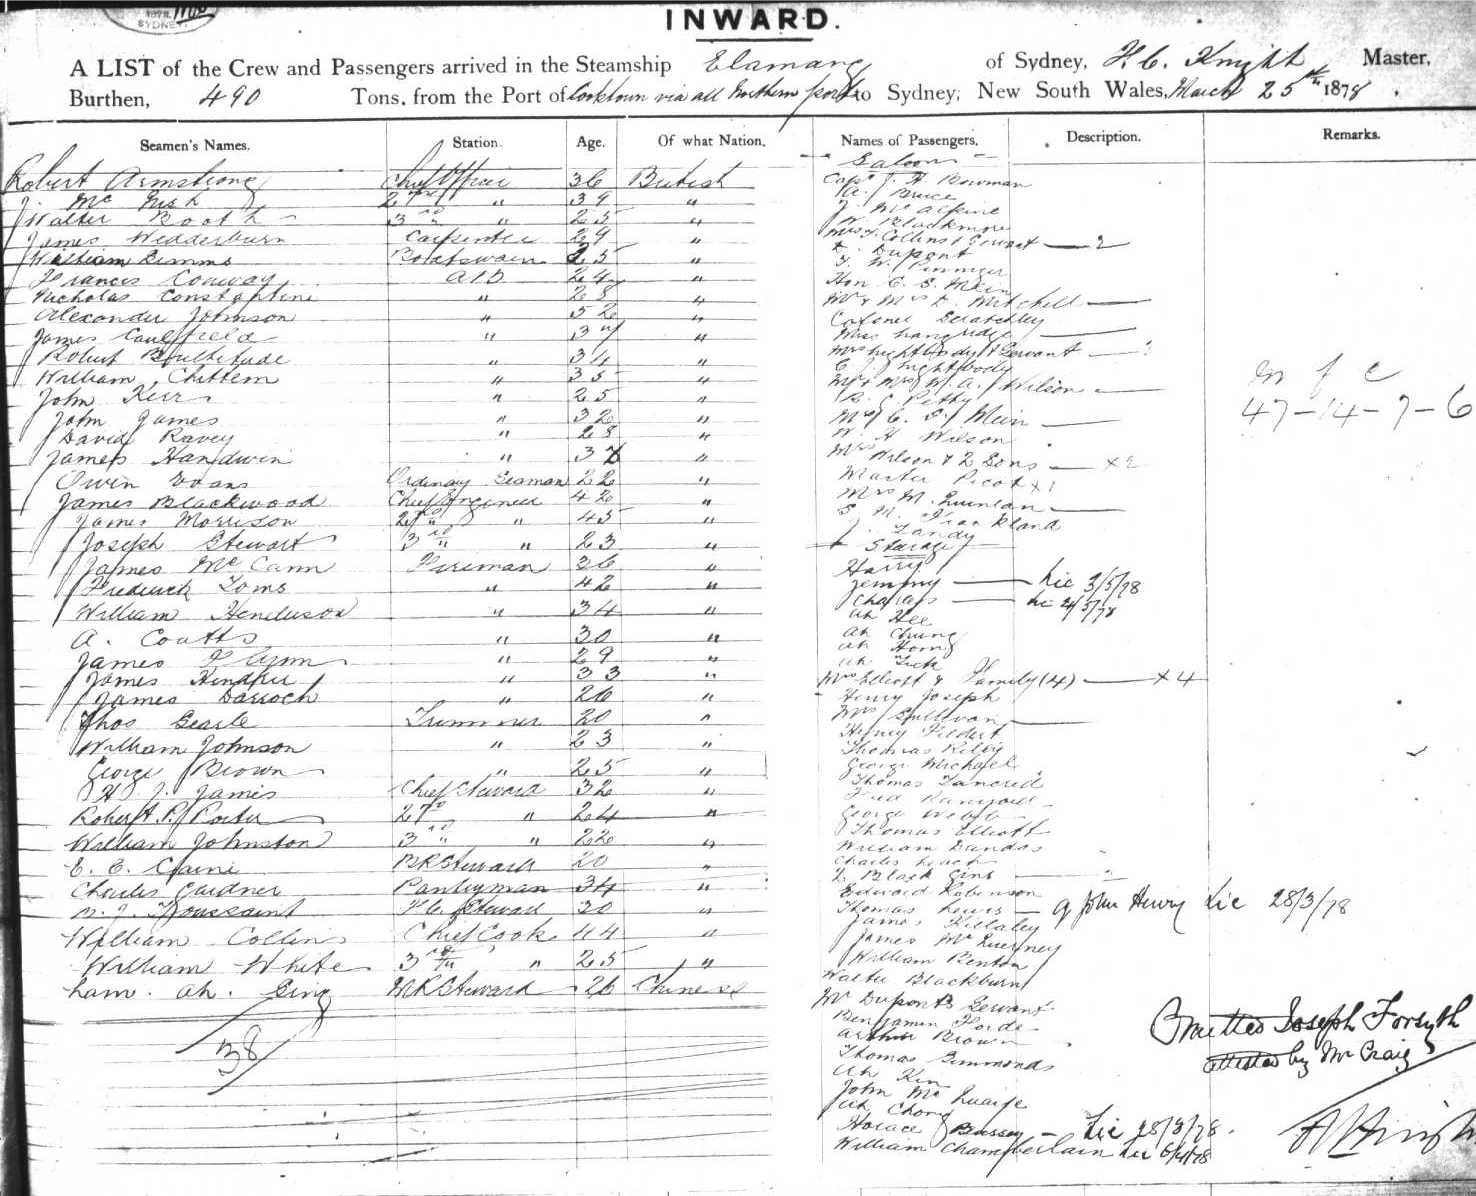 SYDNEY
INWARD.
A LIST of the Crew and Passengers arrived in the Steamship Elamang of Sydney, H. C. Knight Master,
Burthen, 490 Tons, from the Port of Cooktown via all Northern ports to Sydney, New South Wales, March 25th 1878.
Seamen's Names. Station. Age. Of what Nation. Names of Passengers. Description. Remarks.
Robert Armstrong Chief Officer 36 British
J. Mc Nish 2nd " 39 "
Walter Booth 3rd " 25 "
James Wedderburn Carpenter 29 "
William Simms Boatswain 25 "
Francis Conway AB 24 "
Nicholas Constantine " 28 "
Alexander Johnson " 52 "
James Caulfield " 37 "
Robert Boultitude " 34 "
William Chittem " 35 "
John Kerr " 25 "
John James " 32 "
David Ravey " 28 "
James Handwin " 37 "
Owin Evans Ordinary Seaman 22 "
James Blackwood Chief Engineer 42 "
James Morrison 2nd " 45 "
Joseph Stewart 3rd " 23 "
James McCann Fireman 36 "
Frederick Toms " 42 "
William Henderson " 34 "
A. Coutts " 30 "
James Flynn " 29 "
James Hendrie " 33 "
James Darroch " 26 "
Thos Searle Trimmer 20 "
William Johnson " 23 "
George Brown " 25 "
H J. James Chief Steward 32 "
Robert P. Porter 2nd " 24 "
William Johnston 3rd " 22 "
E. E. Caine BR Steward 20 "
Charles Gardner Pantryman 34 "
Toussaint F.C. Steward 30 "
William Collins Chief Cook 44 "
William White 3rd " 25 "
Lam. Ah. Sing MR Steward 26 Chinese
38
Saloon
Capt J. H. Bowman
A. Bruce
J. McAlpine
W. Blackmore
Mrs F. Collins & Servant — 2
E. Dupont
F. W. Pinniger
Hon C. S. Mein
Mr & Mrs E. Mitchell —
Colonel Scratchley
Miss Langridge —
Mrs Lightbody & Servant —
C. J. Lightbody
Mr & Mrs W. A. Wilson —
R. C. Petty
Mrs C. S. Mein —
W. H. Wilson
Mrs Wilson & 2 Sons — x2
Master Picot x1
Mrs M. Quinlan —
S. M. Frankland
J. Tandy
Steerage
Harry
Jemmy — Lic 3/5/78
Charles — Lic 24/5/78
Ah Hee
Ah Chung
Ah Hong
Ah Tick
Mrs Elliott & Family (4) — x4
Henry Joseph
Mrs Sullivan —
Henry Fildert
Thomas Riley
George Michael
Thomas Tancred
Fred
George Webb
Thomas Elliott
William Dundas
Charles Leach
2 Black Gins — 2
Edward Robinson
Thomas Lewis — 9 John Henry Lic 28/3/78
James Killaley
James McInerney
William Renton
Walter Blackburn
Mr Duponts Servant
Benjamin Forde
Arthur Brown
Thomas Simmonds
Ah Kin
John Mc Quaige
Ah Chong
Horace Bussey — Lic 28/3/78.
William Chamberlain Lic 6/4/78
m f c
47-14-7-6
Omitted Joseph Forsyth
attested by Mr Craig
H C Knight